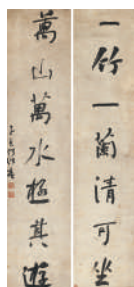 一竹一蘭清可坐
萬山萬水極其遊